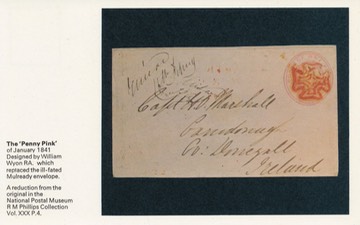 The 'Penny Pink'
of January 1841
Designed by William
Wyon RA. which
replaced the ill-fated
Mulready envelope.
A reduction from the
original in the
National Postal Museum
R M Phillips Collection
Vol. XXX P.4.
Capt H D Marshall
Co: Donegall
Ireland